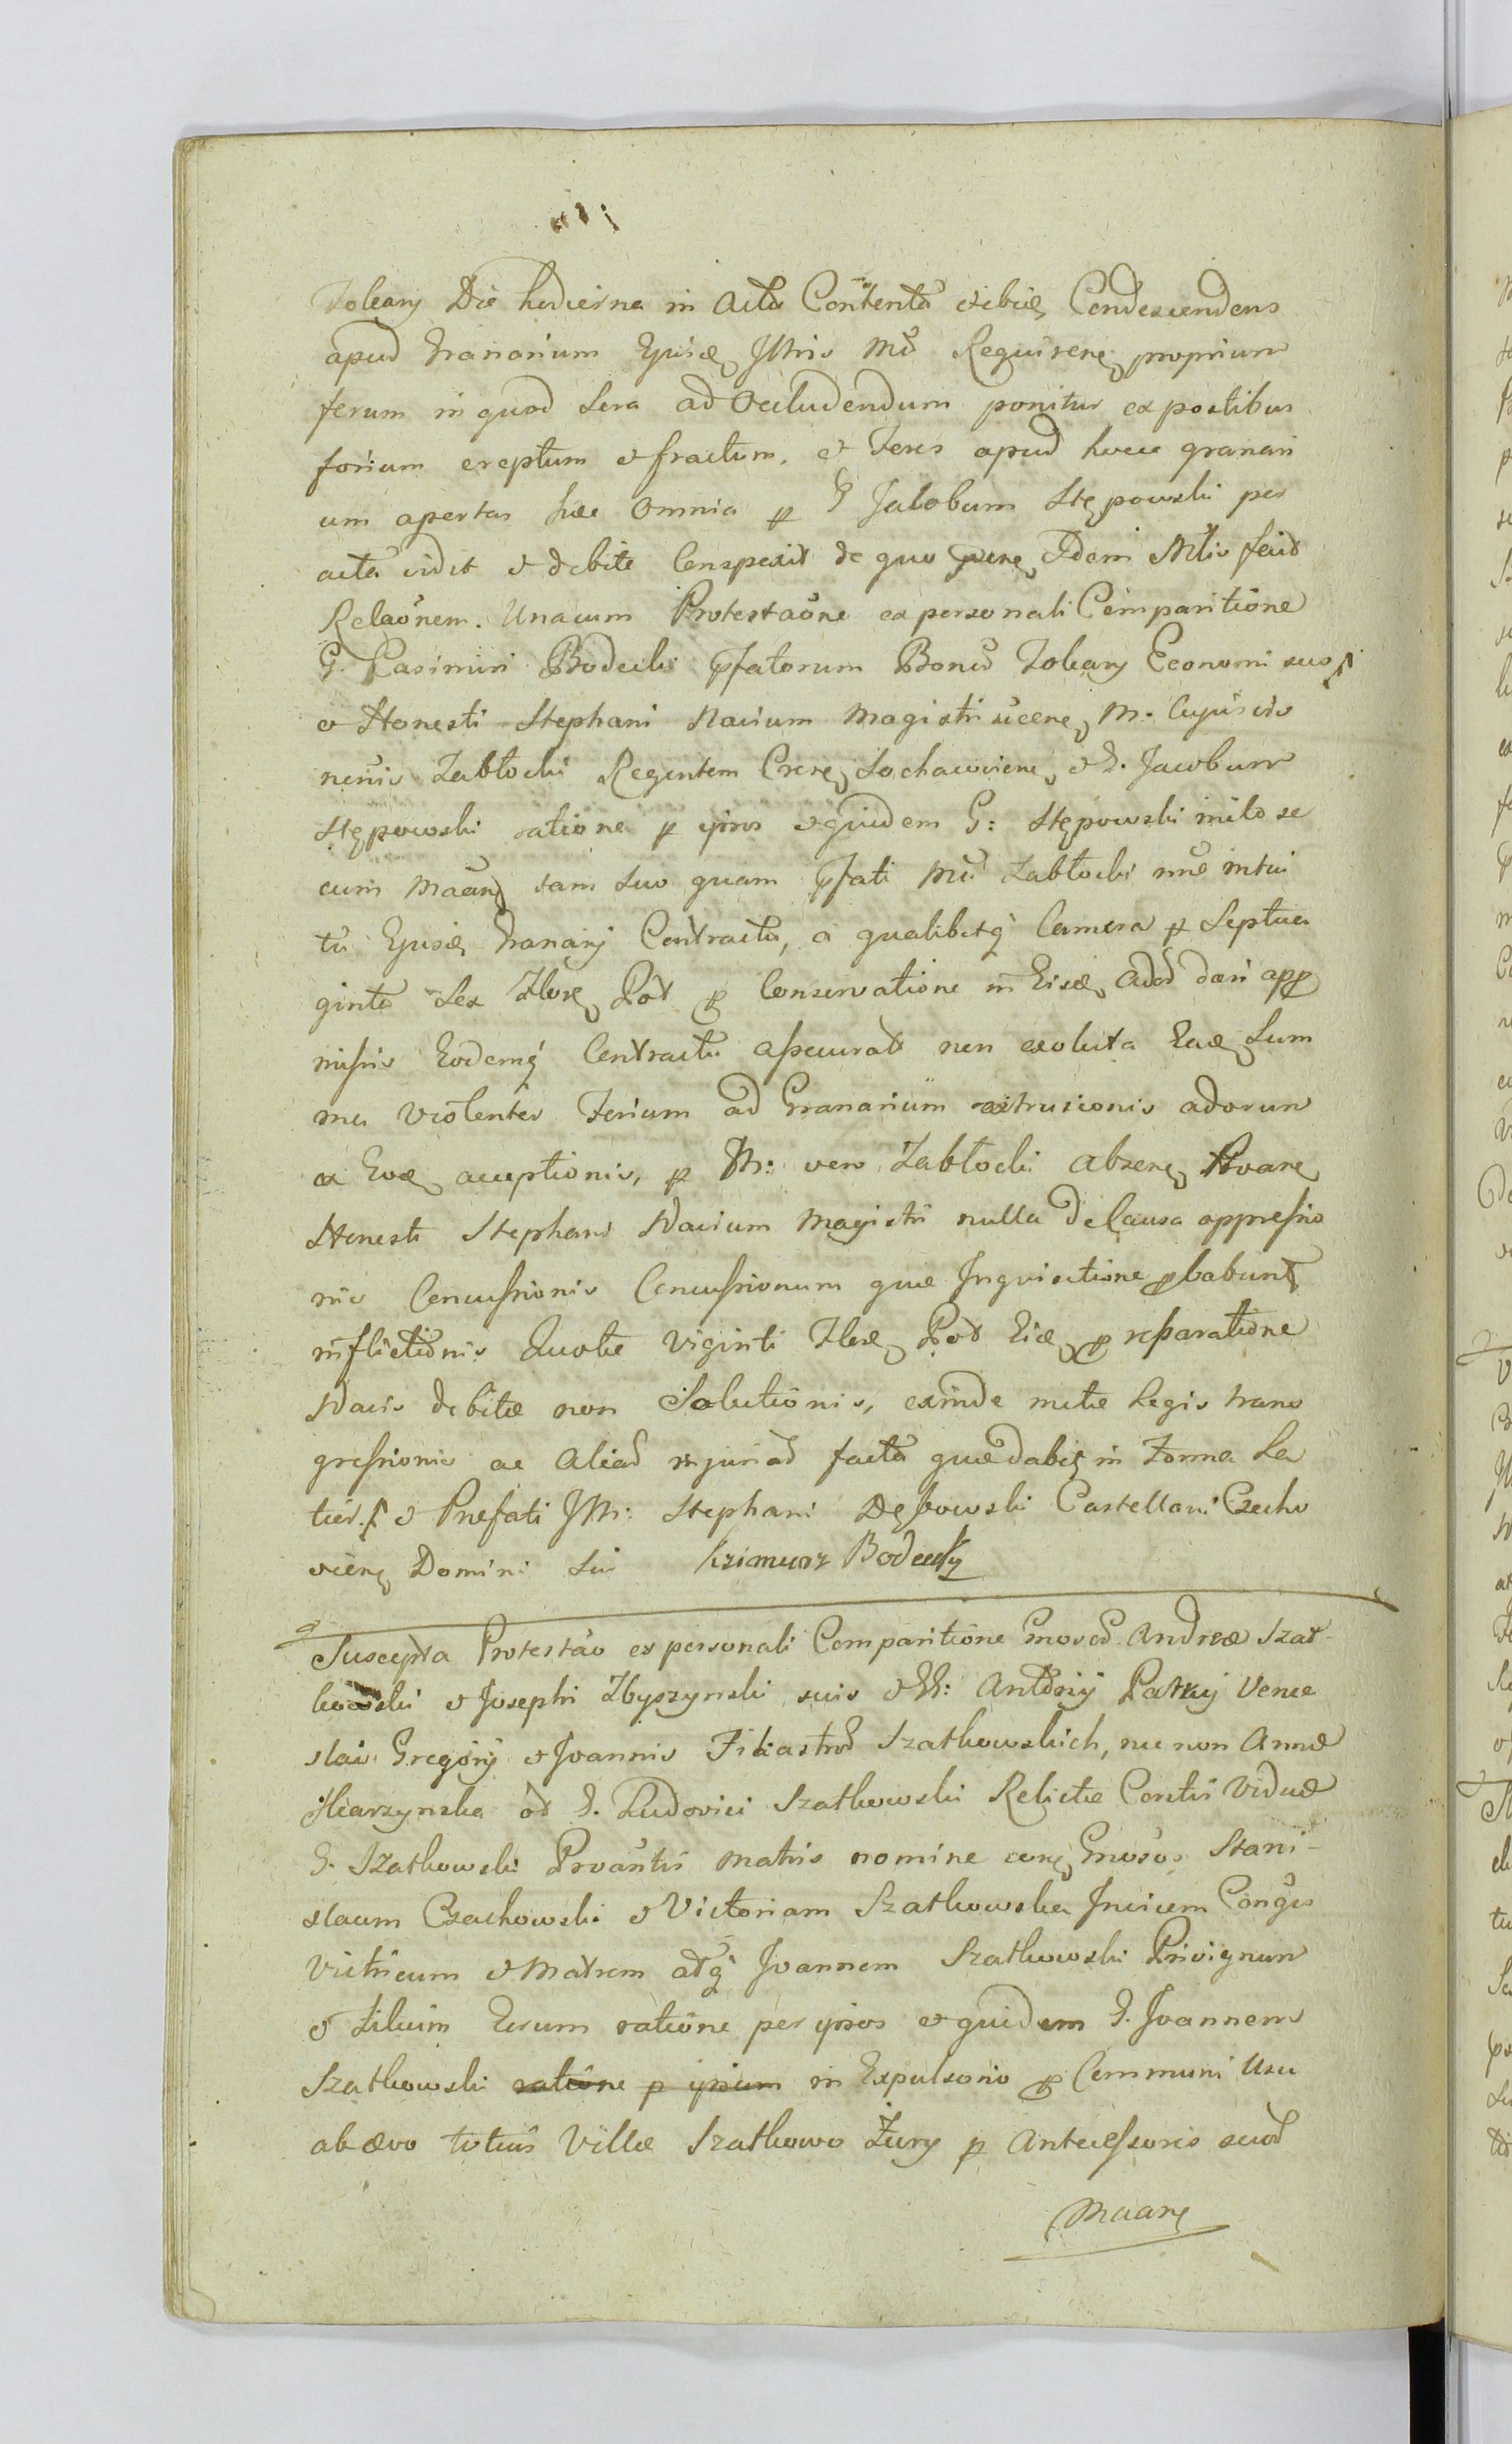 Tolkany Die hodierna in Actu Contenta Condescendens
apud Granarium Ejusd Mtris Md Requirens proprium
ferum in quod Sera ad Occludendum ponitur ex postibus
forium ereptum et fractum, et Fores apud hocce granari
um apertas hæc Omnia p G Jakobum Stępowski per
acta vidit et debite Conspexit de quo Idem Mtlis fecit
Relaōnem. Unacum Protestaōne ex personali Comparitione
G. Casimiri Bodecki pfatorum Bonor Tolkany Economi suo
et Honesti Stephani Navium Magistri M. Cyprivia
nensis Zabłocki Regentem Sochaczeviens et G. Jacobum
Stępowski ratione p ipsos et quidem G: Stępowski inito se
cum tam suo quam pfati Mci Zabłocki nne intui
tu Ejusd Granarij Contractu, a qualibetq Camera p Septua
ginta Sex Flor Pol p Conservatione in Eisd Ador dari app
missis Eodemq Contractu assecurat non exoluta Ead Sum
ma violenter Forium ad Granarium extrusionis adorum
ex Eod acceptionis, p M: vero Zabłocki absens
Honesti Stephani Navium Magistri nulla de Causa oppressio
nis Concussionis Concussionum quæ Inquisitione pbabunt
inflictionis Quotæ viginti Flor Pol Eid p reparatione
Navis debitæ non Solutionis, exinde metæ Legis trans
gressionis ac Aliar injuriar facta quæ dabit in Forma La
tiori et Prefati JM: Stephani Dębowski Castellani Czecho
viens Domini Sui Kzimierz Bodecky
Suscepta Protestāo ex personali Comparitione Gnosor Andreæ Szat-
kowski et Josephi Zbyszynski suis et GG: Antonij Patrij Vence
slai Gregorij et Joannis Filiastror Szatkowskich, nec non Annæ
Skarzynska ol G. Ludovici Szatkowski Relictæ Conthi Viduæ
G. Szatkowski Matris nomine Gnosos Stani-
slaum Czachowski et Victoriam Szatkowska Invicem Congs
Vitricum et Matrem atq Joannem Szatkowski Privignum
et Filium Eorum ratione per ipsos et quidem G. Joannem
Szatkowski ratione p ipsum in Expulsorio p Communi Usu
ab ævo totius Villæ Szatkowo Żury p Antecessoris suor
Maans